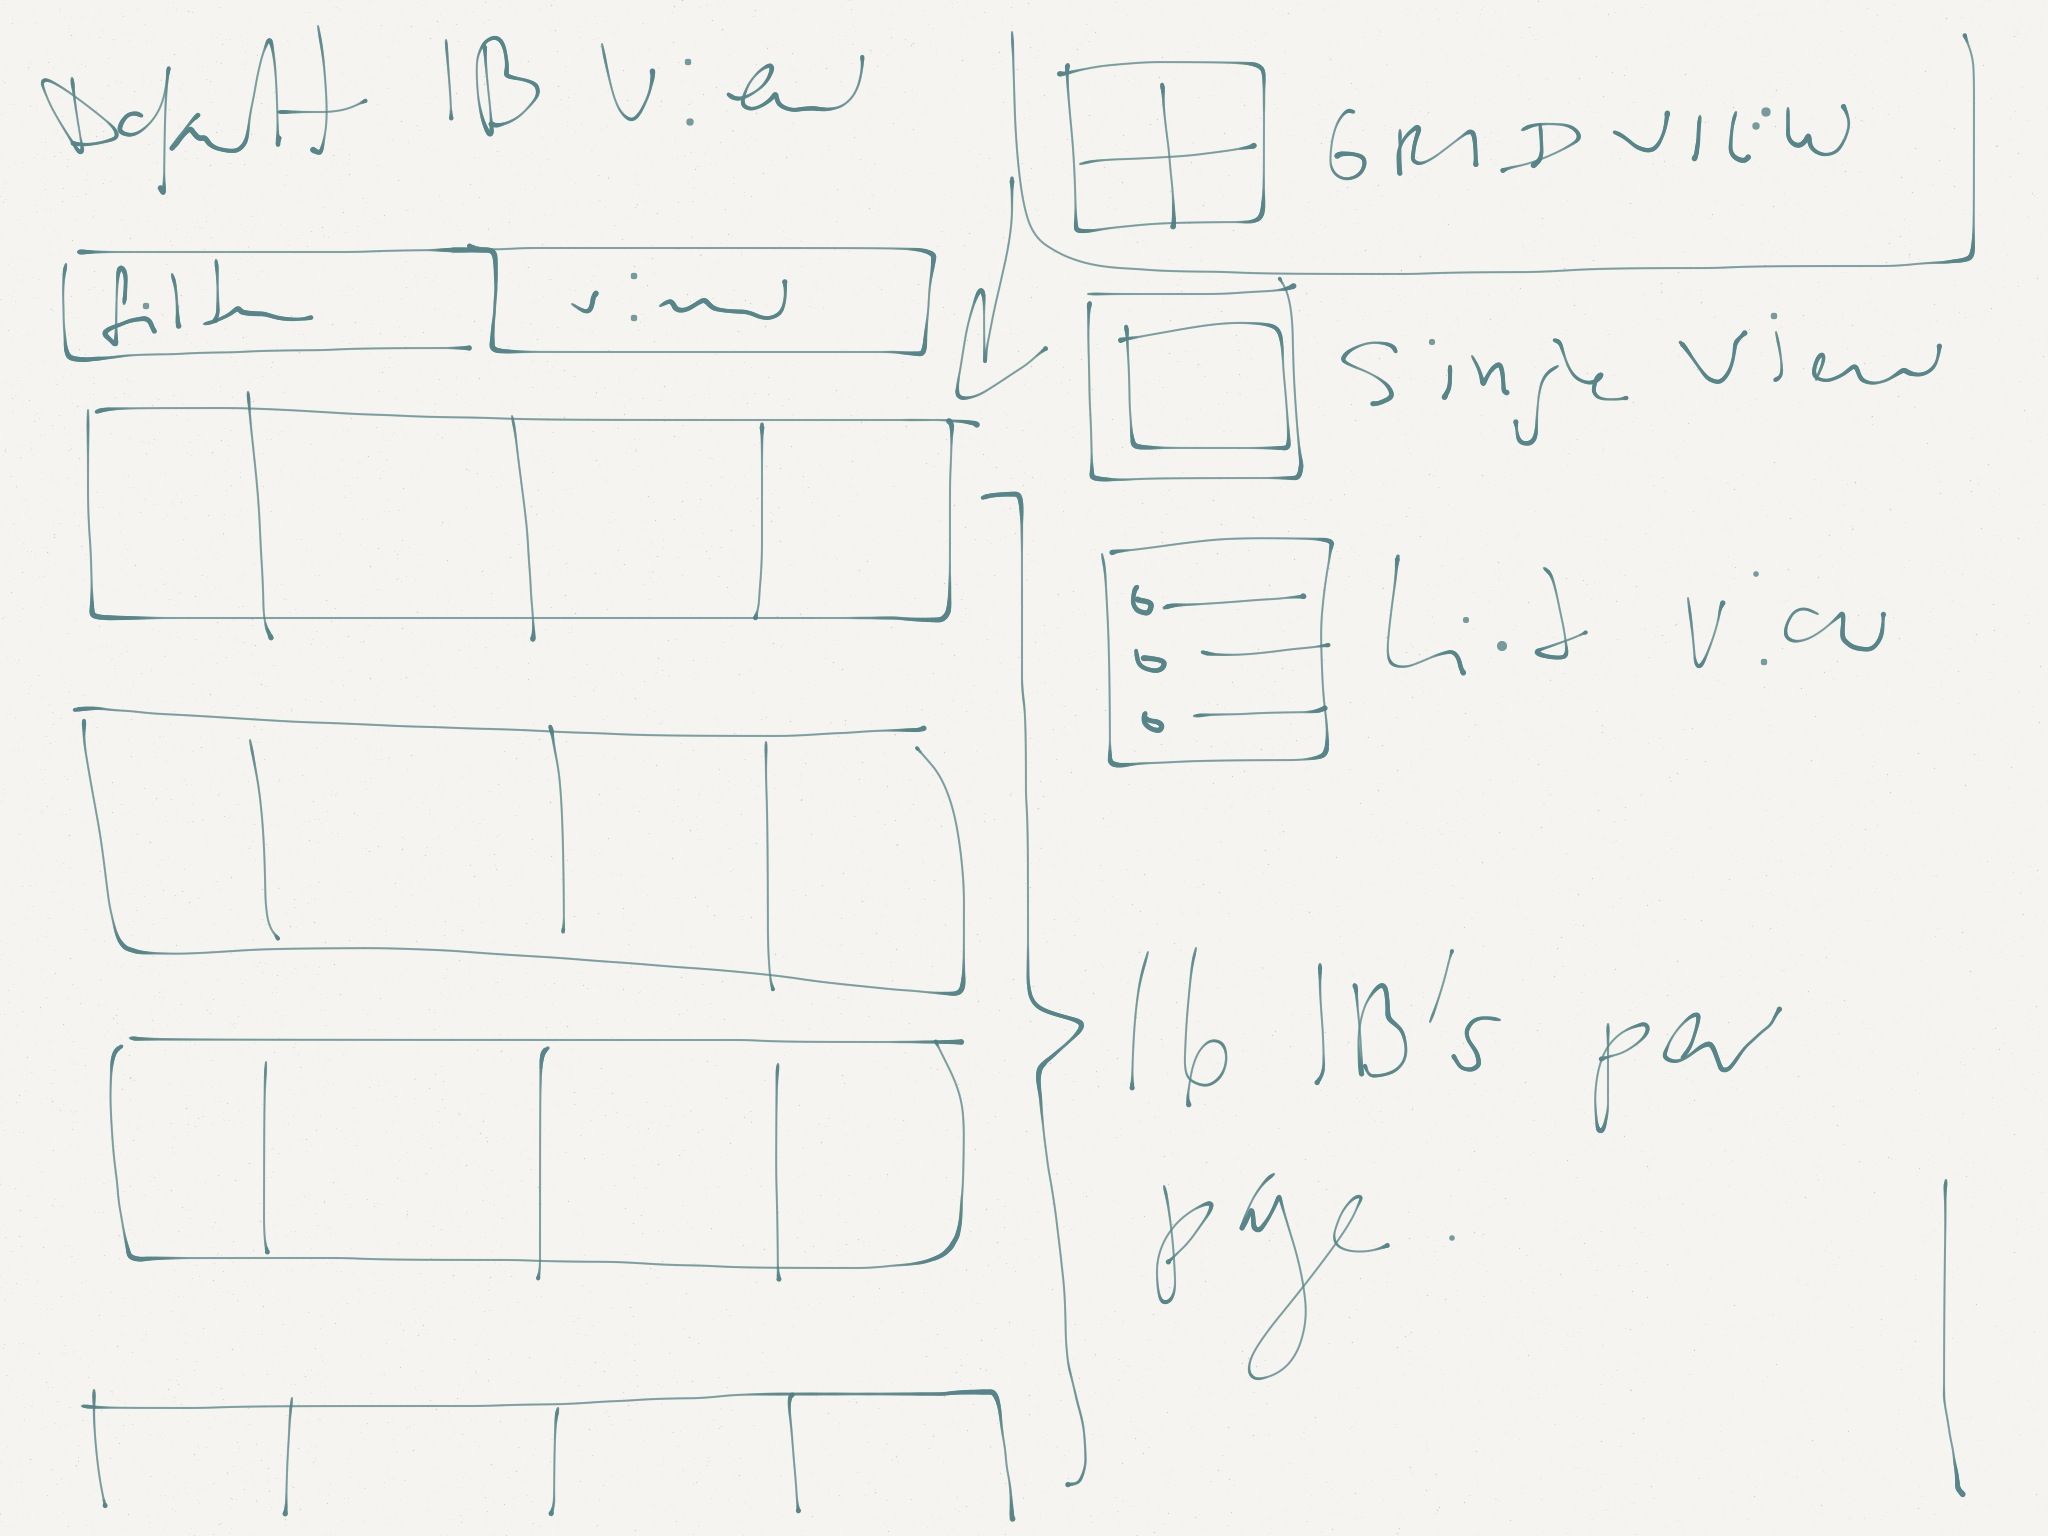 Default IB View
GRID VIEW
filter
view
Single View
List View
16 IB's per
page.